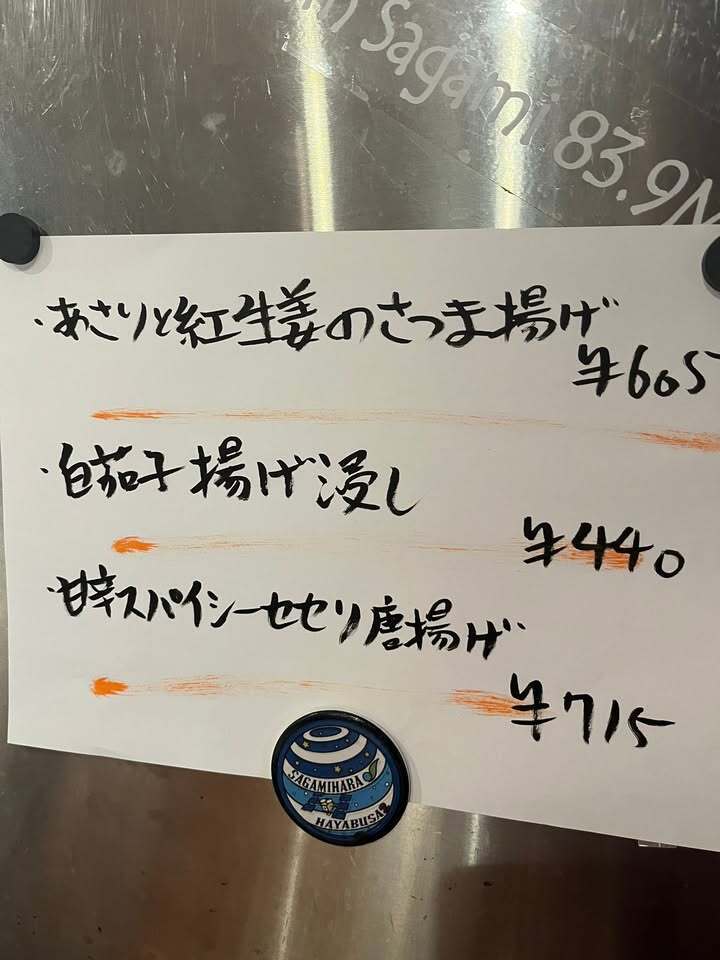 Sagami 83.9M
・あさりと紅生姜のさつま揚げ
¥605
・白茄子揚げ浸し
¥440
・甘辛スパイシーセセリ唐揚げ
¥715
SAGAMIHARA
HAYABUSA2